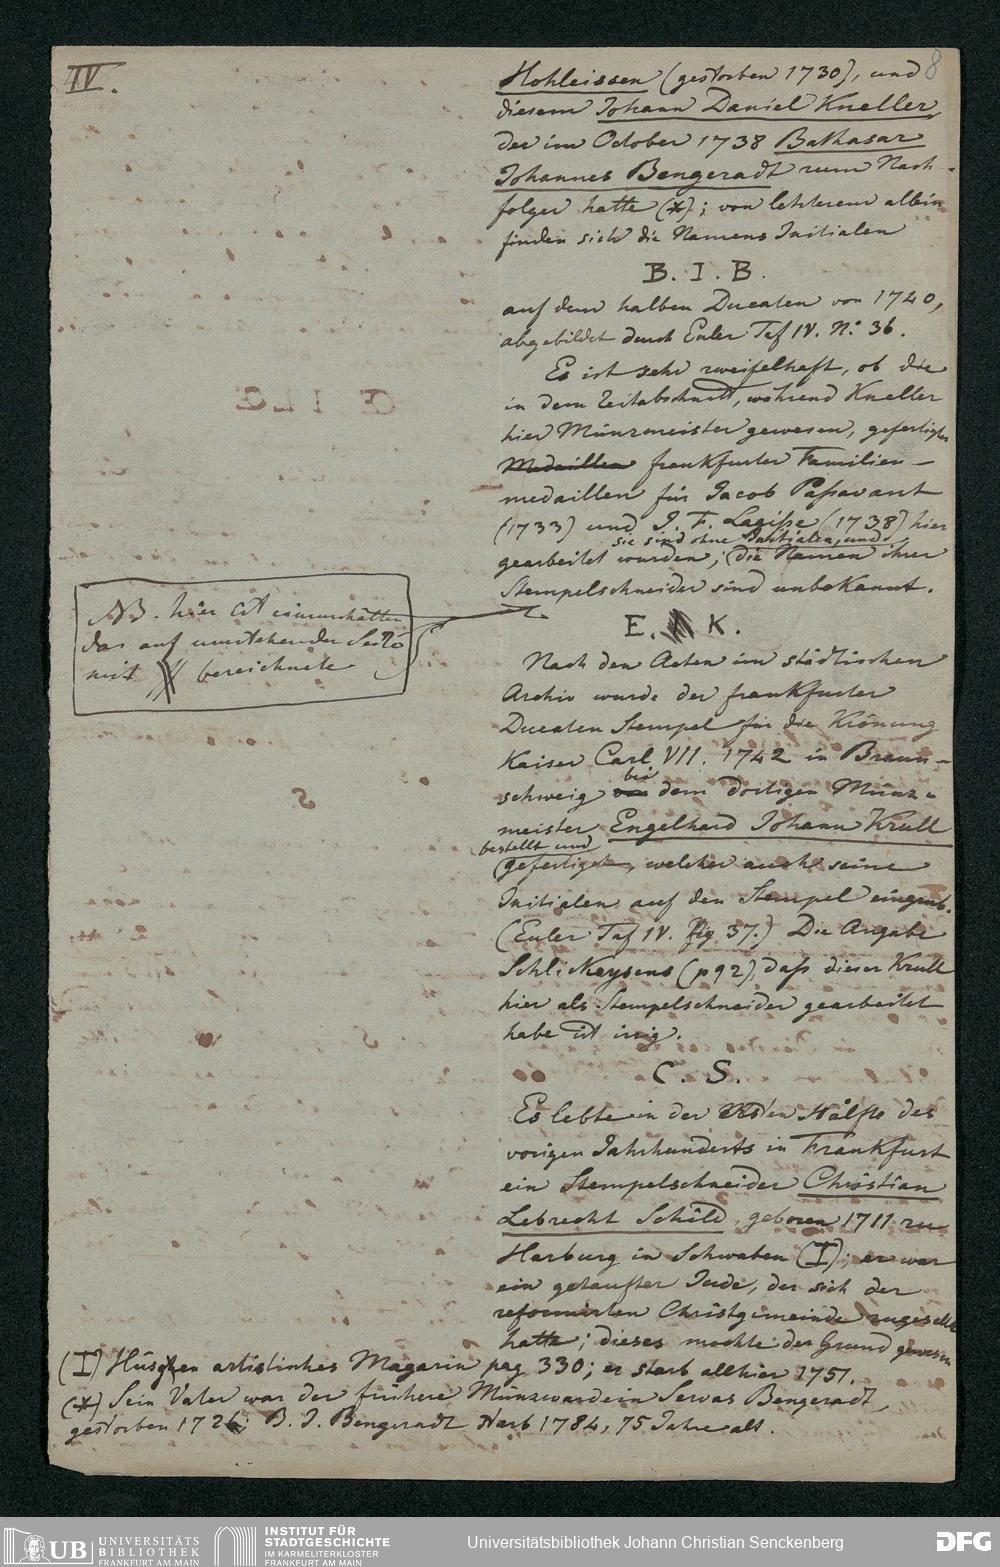 IV.
8
Hohleissen (gestorben 1730), und
diesem Johann Daniel Kneller,
der im October 1738 Balthasar
Johannes Bengeradt zum Nach-
folger hatte (*); von letzterem allein
finden sich die Namens Initialen
B. I. B.
auf dem halben Ducaten von 1740,
abgebildet durch Euler Taf IV. No. 36.
Es ist sehr zweifelhaft, ob die
in dem Zeitabschnitt, während Kneller
hier Münzmeister gewesen, gefertigten
Medaillen frankfurter Familien-
medaillen für Jacob Paßavant
(1733) und J. F. Lagiße (1738) hier
sie sind ohne Initialen, und
gearbeitet wurden; die Namen ihrer
Stempelschneider sind unbekannt.
NB. hier ist einzuschalten
das auf umstehender Seite
mit # bezeichnete
E. K.
Nach den Acten im städtischen
Archiv wurde der frankfurter
Ducaten Stempel für die Krönung
Kaiser Carl VII. 1742 in Braun-
bei
schweig von dem dortigen Münz-
meister Engelhard Johann Krull
bestellt und
gefertiget, welcher auch seine
Initialen auf den Stempel eingrub.
(Euler Taf IV. fig 37.) Die Angabe
Schlikeysens (p 92), daß dieser Krull
hier als Stempelschneider gearbeitet
habe ist irrig.
C. S.
Es lebte in der ersten Hälfte des
vorigen Jahrhunderts in Frankfurt
ein Stempelschneider Christian
Lebrecht Schild, geboren 1711 zu
Harburg in Schwaben (I); er war
ein getaufter Jude, der sich der
reformirten Christgemeinde zugesellt
hatte; dieses mochte der Grund gewesen
(I) Hüsgen artistisches Magazin pag 330; er starb allhier 1751.
(*) Sein Vater war der frühere Münzwardein Servas Bengeradt,
gestorben 1726; B. J. Bengeradt starb 1784, 75 Jahre alt.
UB UNIVERSITÄTS
BIBLIOTHEK
FRANKFURT AM MAIN
INSTITUT FÜR
STADTGESCHICHTE
IM KARMELITERKLOSTER
FRANKFURT AM MAIN
Universitätsbibliothek Johann Christian Senckenberg
DFG